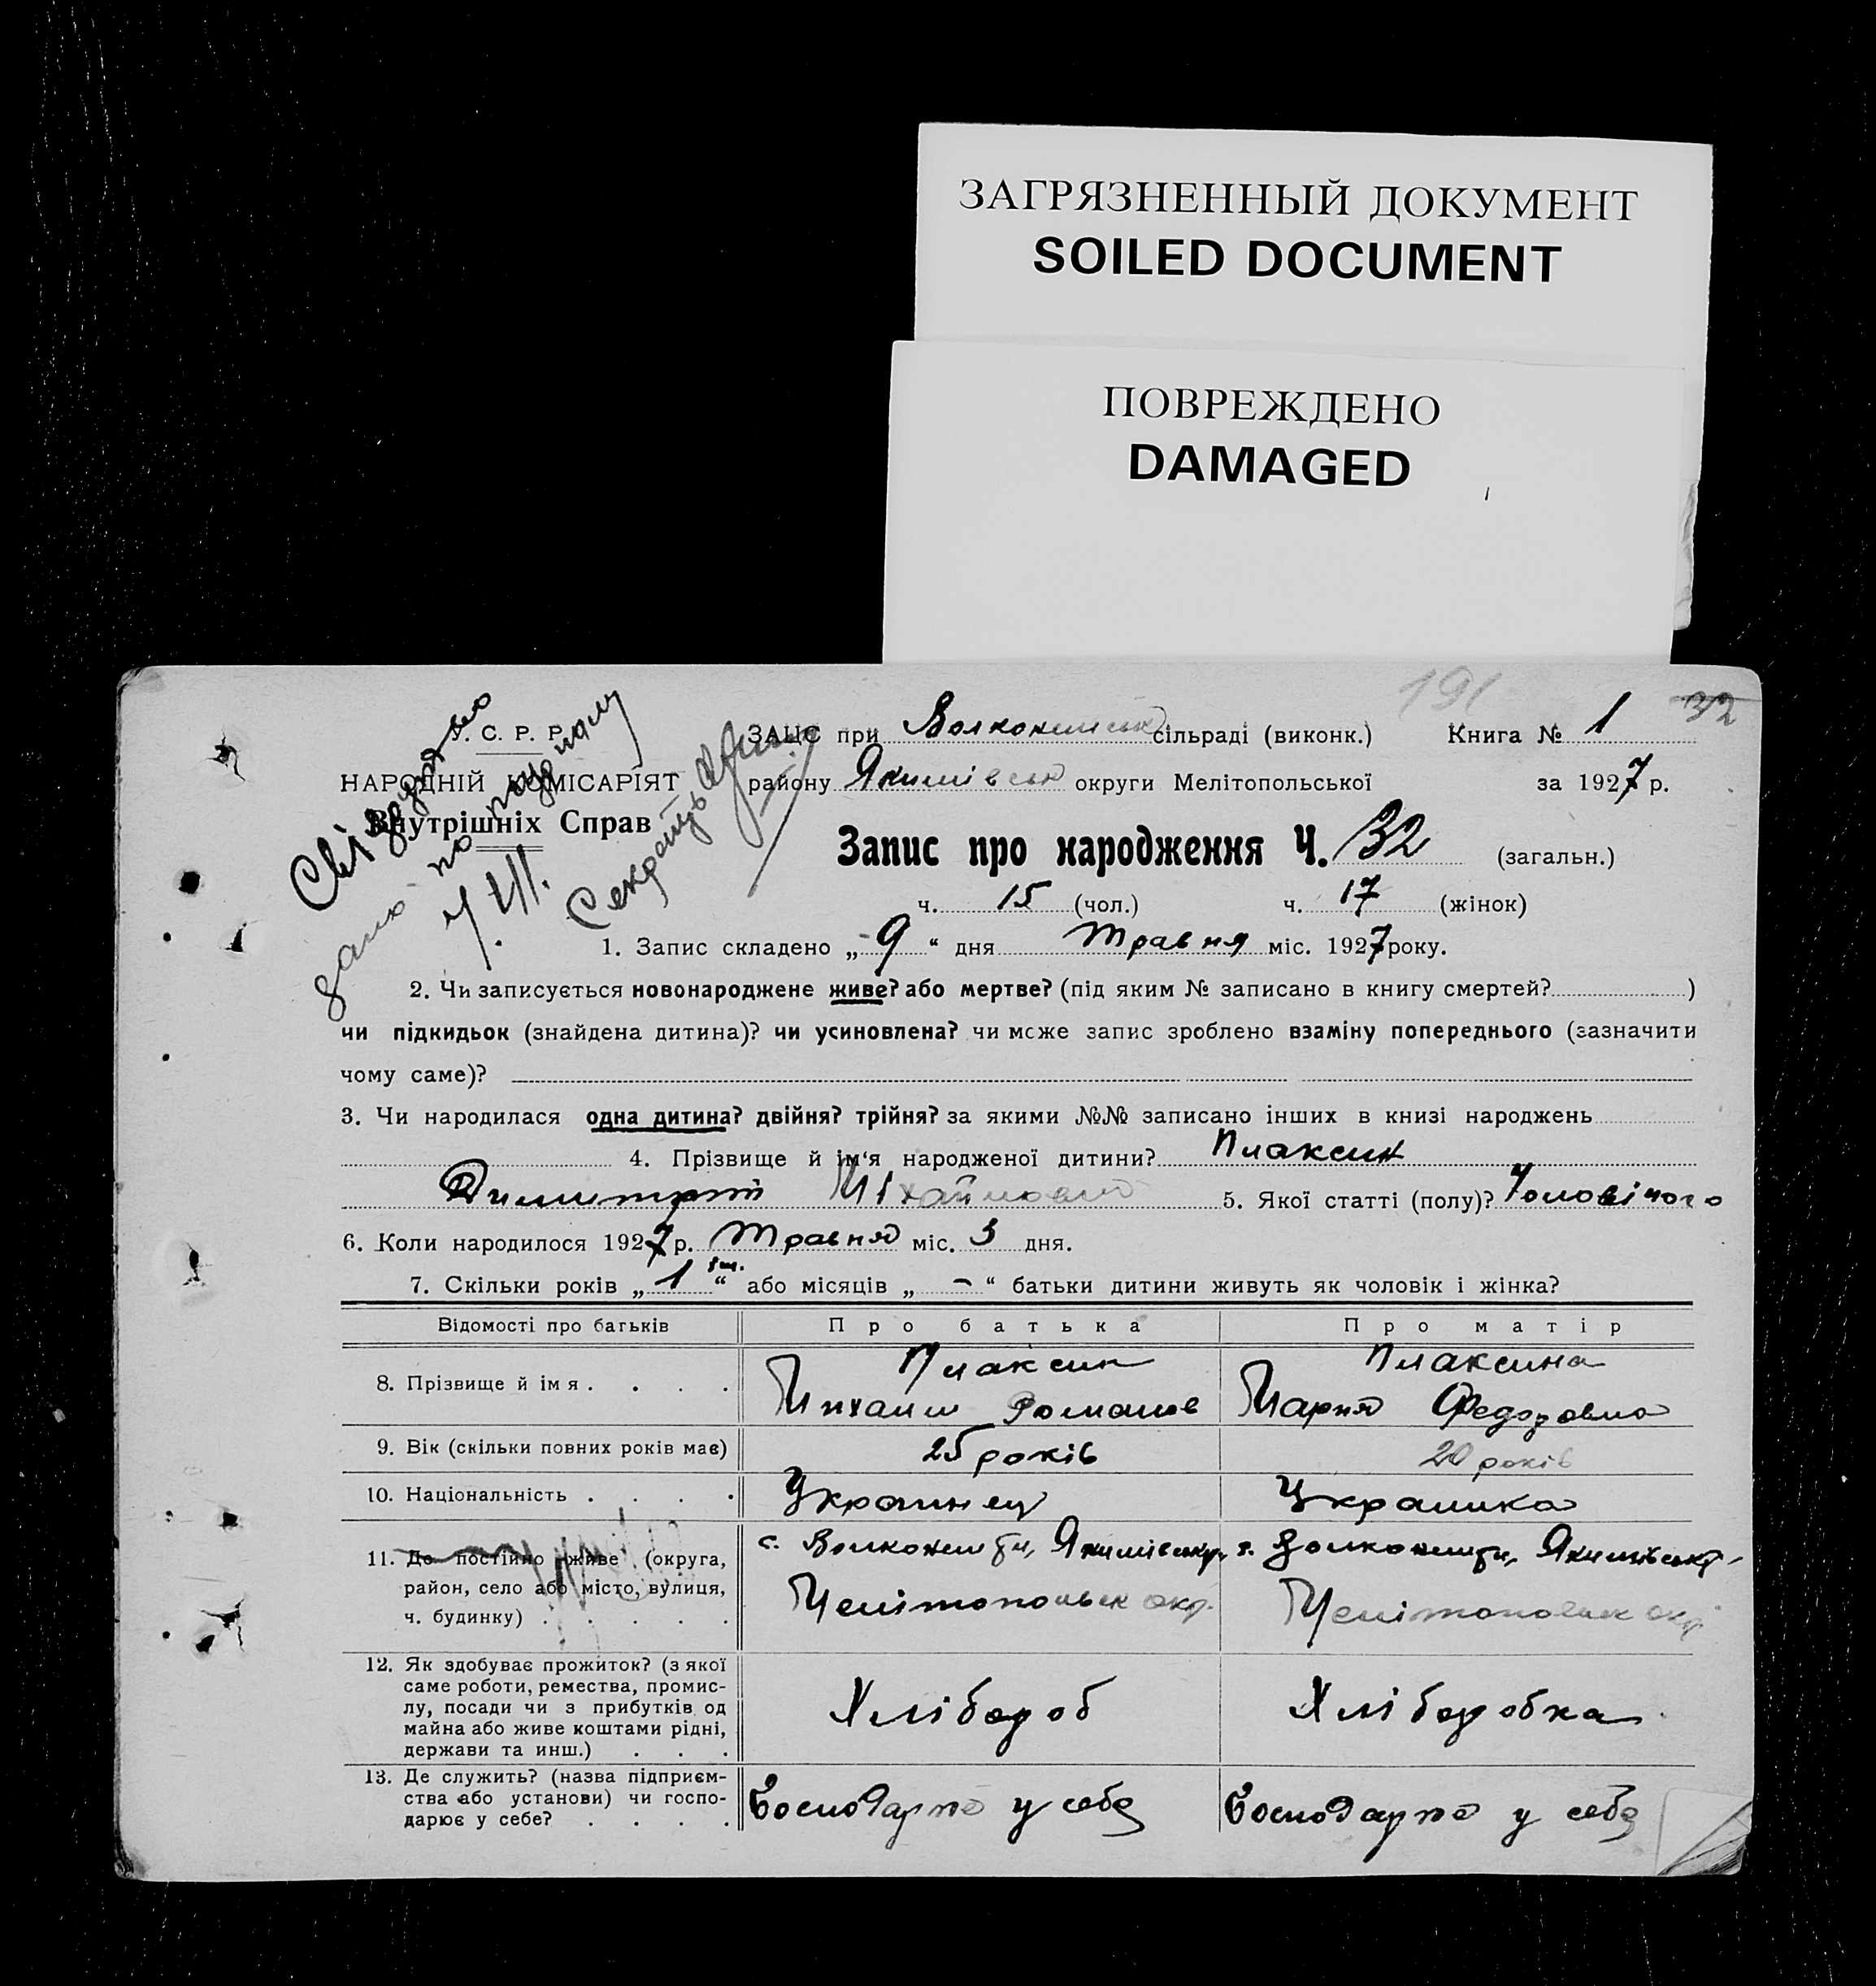 ЗАГРЯЗНЕННЫЙ ДОКУМЕНТ
SOILED DOCUMENT
ПОВРЕЖДЕНО
DAMAGED
191 32
У. С. Р. Р.
НАРОДНІЙ КОМІСАРІЯТ
Внутрішніх Справ
Свідоцтво
дано по
Секретарь
ЗАЦС при сільраді (виконк.) Книга № 1
району Якимівськ округи Мелітопольської за 1927 р.
Запис про народження Ч. 32 (загальн.)
ч. 15 (чол.) ч. 17 (жінок)
1. Запис складено „ 9 “ дня травня міс. 1927 року.
2. Чи записується новонароджене живе? або мертве? (під яким № записано в книгу смертей? )
чи підкидьок (знайдена дитина)? чи усиновлена? чи може запис зроблено взаміну попереднього (зазначити
чому саме)?
3. Чи народилася одна дитина? двійня? трійня? за якими №№ записано інших в книзі народжень
4. Прізвище й ім‘я народженої дитини? Плаксин
Димитрій Міхайлович 5. Якої статті (полу)? Чоловічого
6. Коли народилося 1927 р. Травня міс. 3 дня.
7. Скільки років „ 1 “ або місяців „ – “ батьки дитини живуть як чоловік і жінка?
Відомості про батьків Про батька Про матір
8. Прізвище й імя . . . . Плаксин Плаксина
Михаил Романов Мария Федоровна
9. Вік (скільки повних років має) 25 років 20 років
10. Національність . . . . Украинец Украинка
11. Де постійно живе (округа,
район, село або місто, вулиця,
ч. будинку) . . . . .
с. Якимівськ
Мелітопольськ окр.
с. Якимівськ
Мелітопольськ окр
12. Як здобуває прожиток? (з якої
саме роботи, ремества, промис-
лу, посади чи з прибутків од
майна або живе коштами рідні,
держави та инш.) . . .
Хлібороб Хліборобка
13. Де служить? (назва підприєм-
ства або установи) чи госпо-
дарює у себе? . . . .
Господарює у себе Господарює у себе